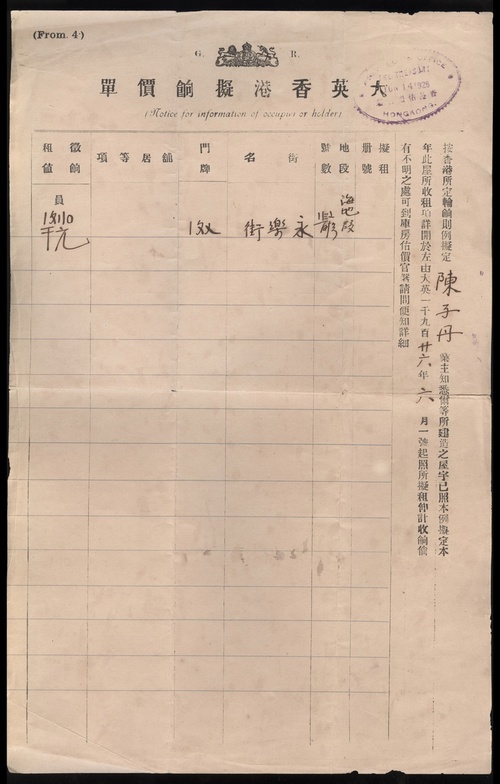 (From. 4)
G. R.
大英香港擬餉價單
(Notice for information of occupier or holder)
HONGKONG.
按香港所定輸餉則例擬定
陳子丹
業主知悉爾等所建造之屋宇已照本例擬定本
年此屋所收租項詳開於左由大英一千九百廿六年六月一號起照所擬租値計收餉俾
有不明之處可到庫房估價官署請問便知詳細
擬租册號
地段號數
街名
門牌
舖居等項
徵餉租値
海地段
永樂街
員